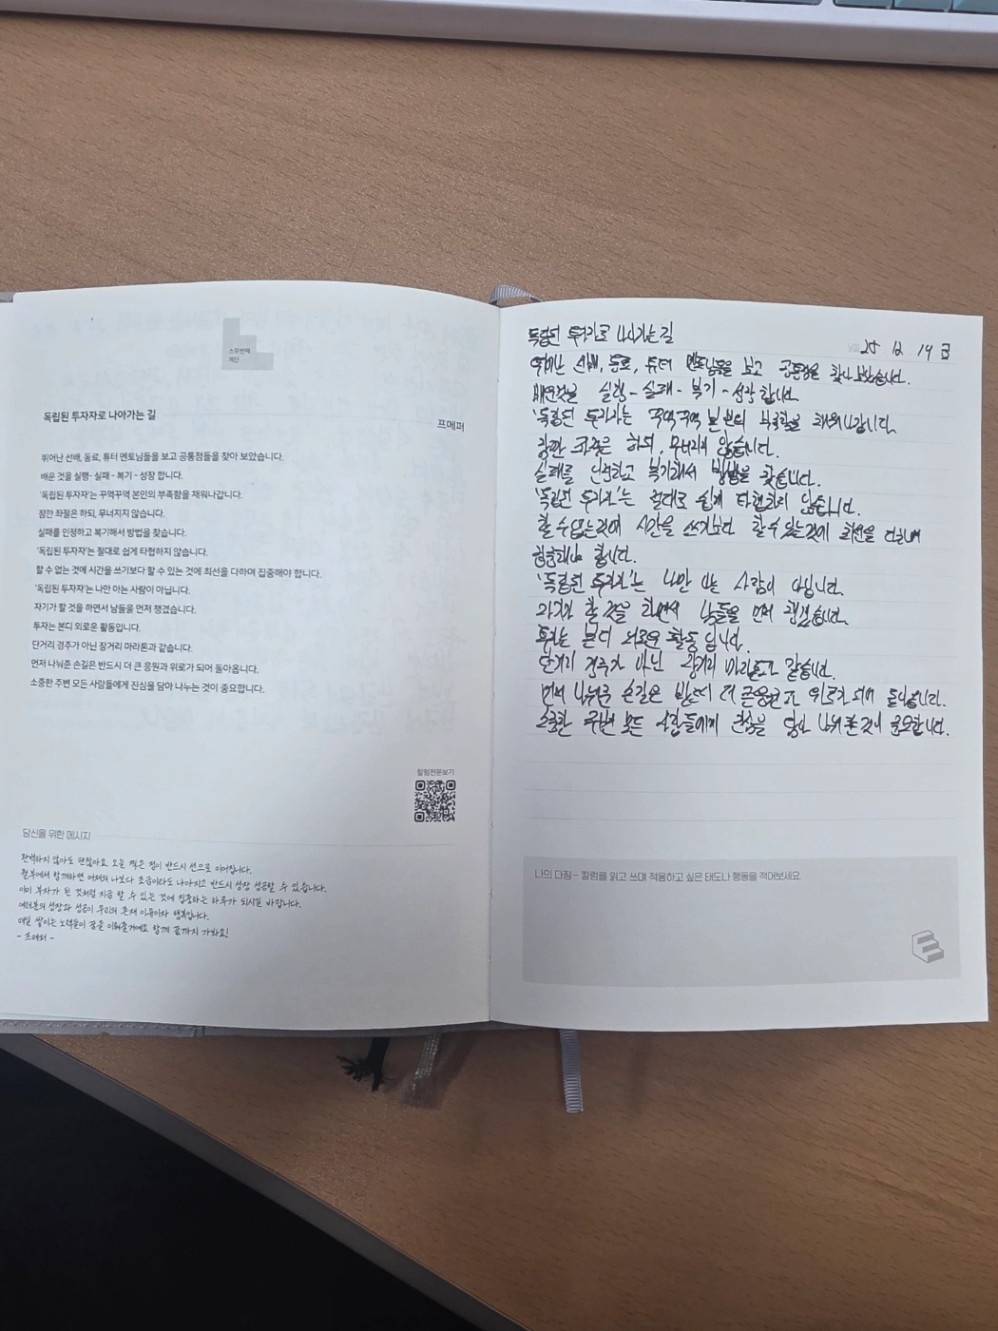 스무번째
계단
독립된 투자자로 나아가는 길
프메퍼
뛰어난 선배, 동료, 튜터 멘토님들을 보고 공통점들을 찾아 보았습니다.
배운 것을 실행- 실패 - 복기 - 성장 합니다.
'독립된 투자자'는 꾸역꾸역 본인의 부족함을 채워나갑니다.
잠깐 좌절은 하되, 무너지지 않습니다.
실패를 인정하고 복기해서 방법을 찾습니다.
'독립된 투자자'는 절대로 쉽게 타협하지 않습니다.
할 수 없는 것에 시간을 쓰기보다 할 수 있는 것에 최선을 다하며 집중해야 합니다.
'독립된 투자자'는 나만 아는 사람이 아닙니다.
자기가 할 것을 하면서 남들을 먼저 챙겼습니다.
투자는 본디 외로운 활동입니다.
단거리 경주가 아닌 장거리 마라톤과 같습니다.
먼저 나눠준 손길은 반드시 더 큰 응원과 위로가 되어 돌아옵니다.
소중한 주변 모든 사람들에게 진심을 담아 나누는 것이 중요합니다.
칼럼전문보기
당신을 위한 메시지
완벽하지 않아도 괜찮아요 오늘 찍은 점이 반드시 선으로 이어집니다.
월부에서 함께하면 어제의 나보다 조금이라도 나아지고 반드시 성장 성공할 수 있습니다.
이미 부자가 된 것처럼 지금 할 수 있는 것에 집중하는 하루가 되시길 바랍니다.
여러분의 성장과 성공이 우리의 존재 이유이자 행복입니다.
매일 쌓이는 노력들이 꿈을 이뤄줄거예요 함께 끝까지 가봐요!
- 프메퍼 -
독립된 투자자로 나아가는 길
25 12 19 금
뛰어난 선배, 동료, 튜터 멘토님들을 보고 공통점을 찾아 보았습니다.
배운것을 실행 - 실패 - 복기 - 성장 합니다.
'독립된 투자자는 꾸역꾸역 본인의 부족함을 채워나갑니다.
잠깐 좌절은 하되, 무너지지 않습니다.
실패를 인정하고 복기해서 방법을 찾습니다.
'독립된 투자자'는 절대로 쉽게 타협하지 않습니다.
할 수 없는것에 시간을 쓰기보다 할 수 있는것에 최선을 다하며
집중해야 합니다.
'독립된 투자자'는 나만 아는 사람이 아닙니다.
자기가 할 것을 하면서 남들을 먼저 챙겼습니다.
투자는 본디 외로운 활동 입니다.
단거리 경주가 아닌 장거리 마라톤과 같습니다.
먼저 나눠준 손길은 반드시 더 큰응원과 위로가 되어 돌아옵니다.
소중한 주변 모든 사람들에게 진심을 담아 나눠 것이 중요합니다.
나의 다짐 - 칼럼을 읽고 쓰며 적용하고 싶은 태도나 행동을 적어보세요.